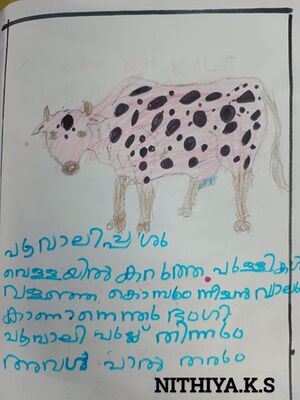 പൂവാലിപ്പശു
വെള്ളയിൽ കറുത്ത പുള്ളികൾ
വളഞ്ഞ കൊമ്പും നീളൻ വാലും
കാണാനെന്തു ഭംഗി
പൂവാലി പുല്ല് തിന്നും
അവൾ പാലു തരും
NITHIYA.K.S